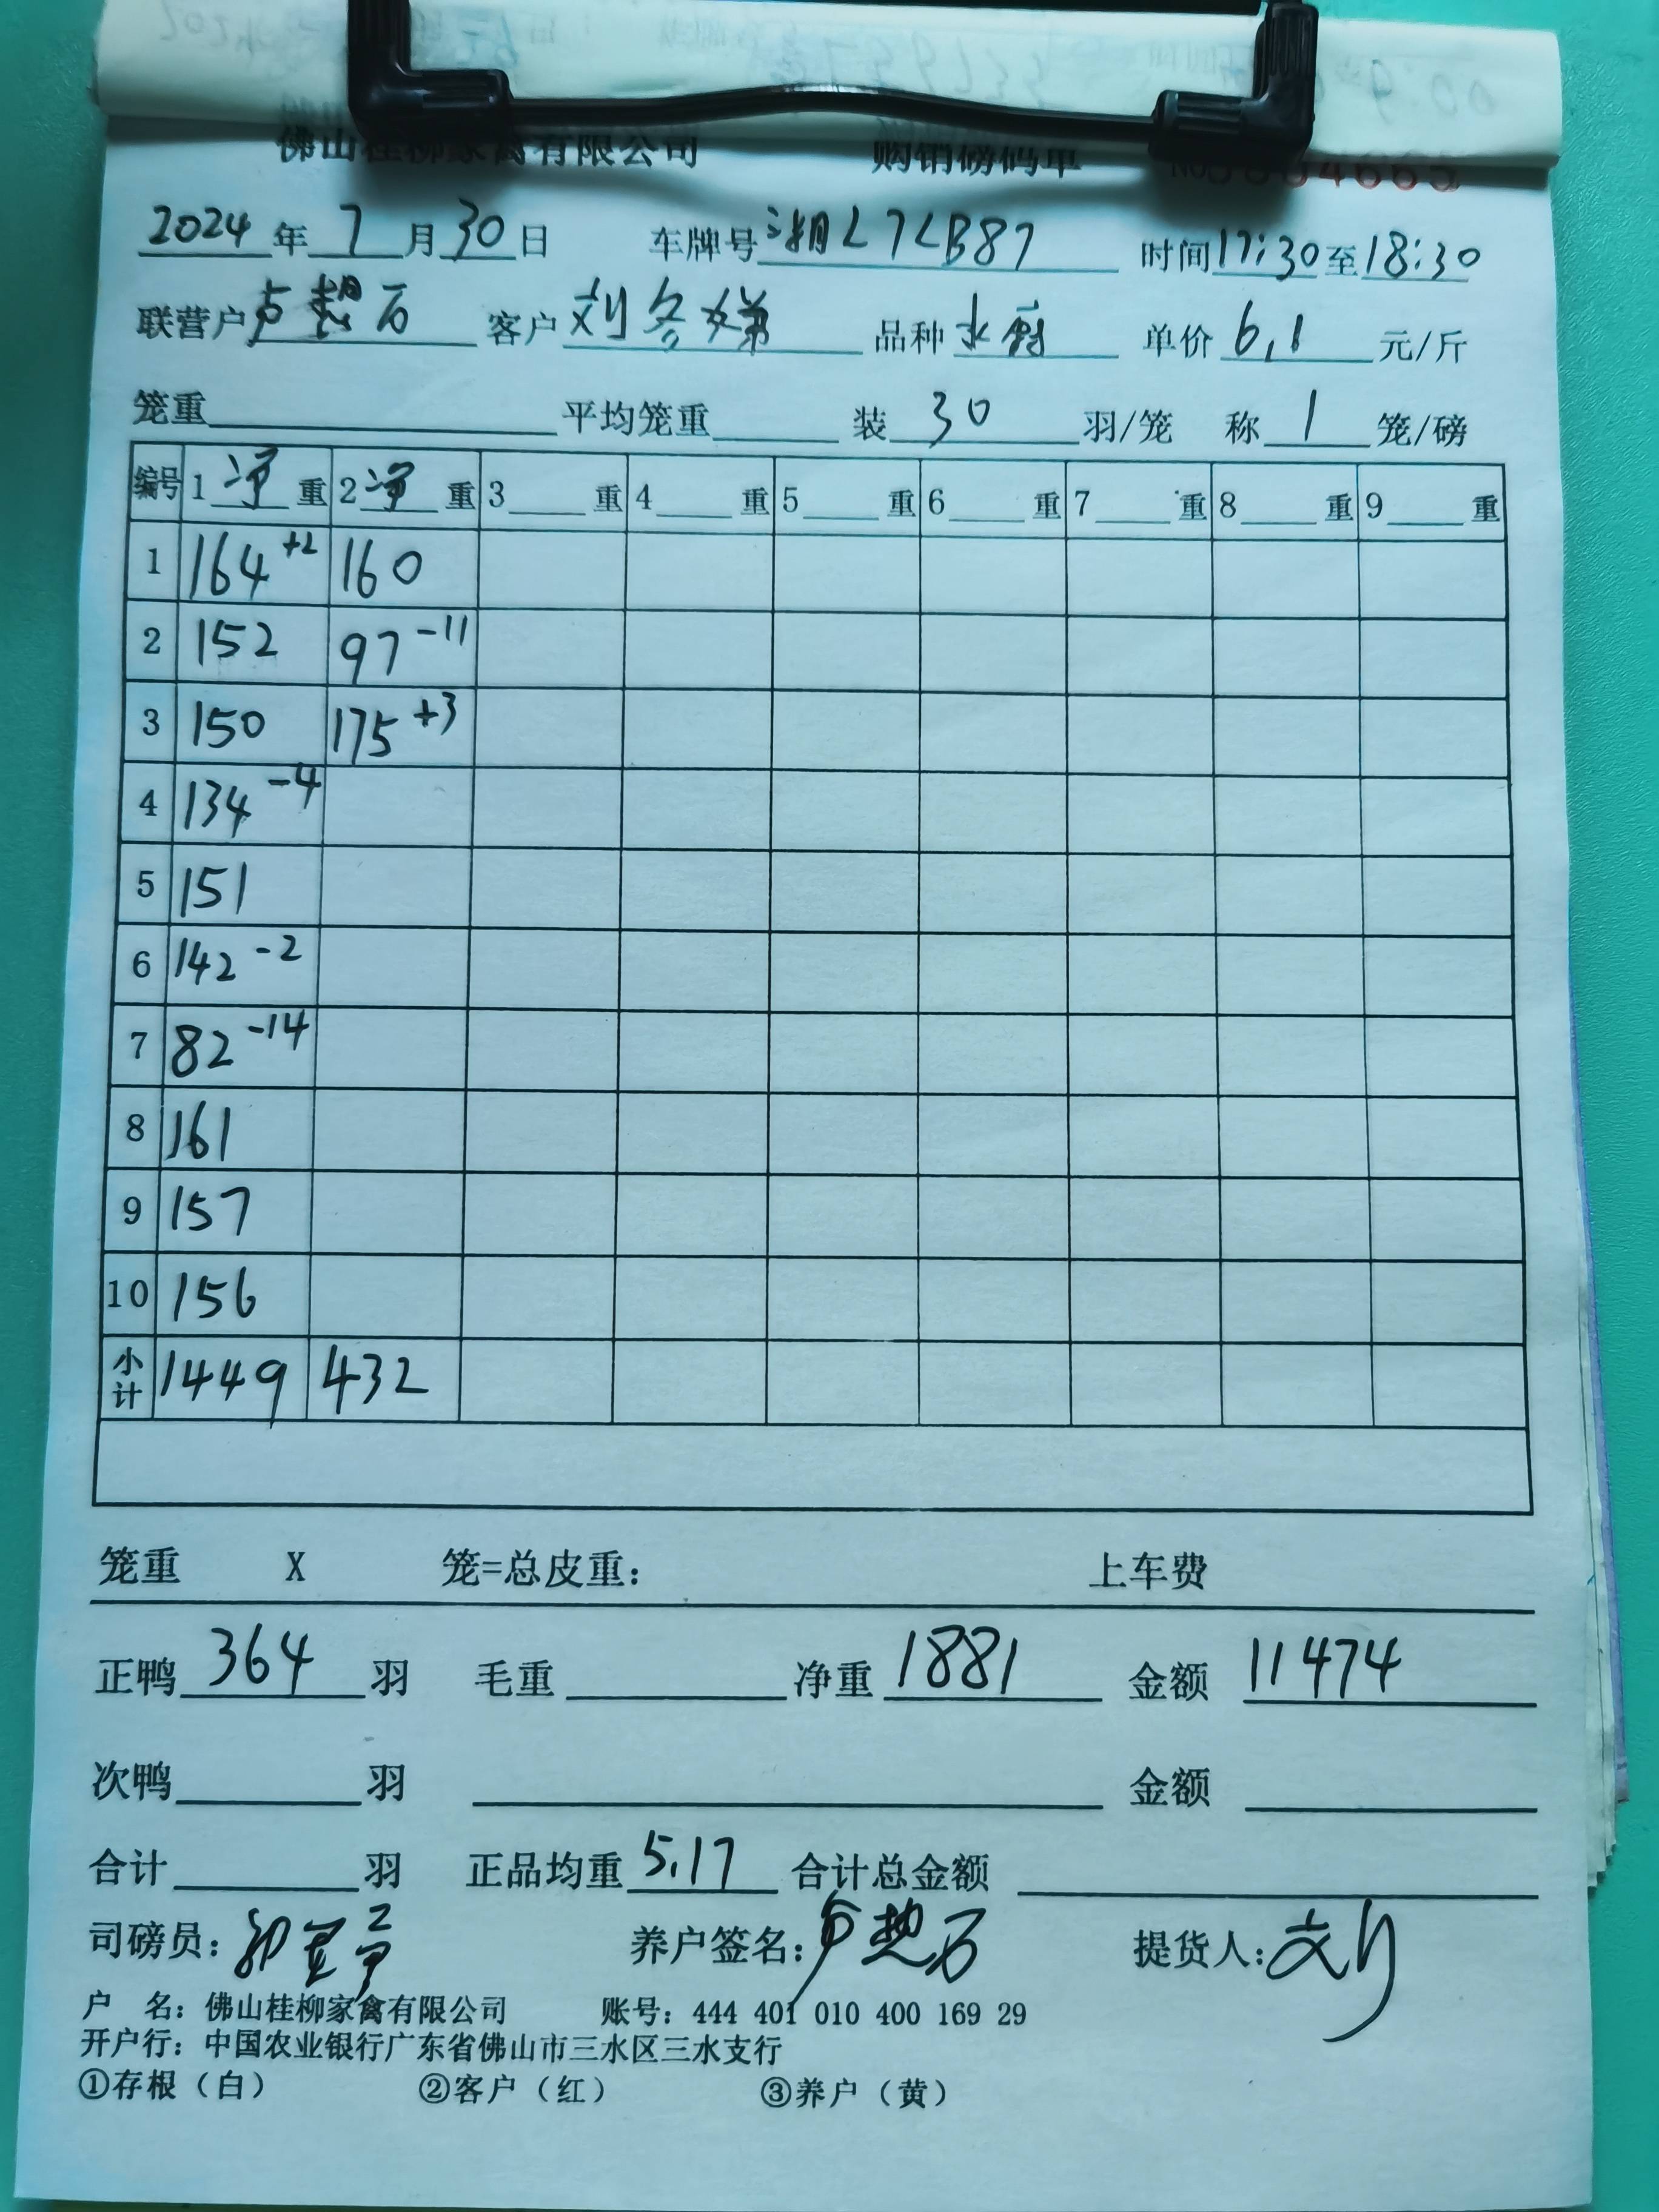 佛山桂柳家禽有限公司 购销磅码单 №0004665
2024年7月30日 车牌号 湘L7LB87 时间17:30至18:30
联营户 卢想石 客户 刘冬娣 品种 单价 6.1 元/斤
笼重 平均笼重 装 30 羽/笼 称 1 笼/磅
编号 1 净 重 2 净 重 3 重 4 重 5 重 6 重 7 重 8 重 9 重
1 164 +2 160
2 152 97 -11
3 150 175 +3
4 134 -4
5 151
6 142 -2
7 82 -14
8 161
9 157
10 156
小计 1449 432
笼重 X 笼=总皮重: 上车费
正鸭 364 羽 毛重 净重 1881 金额 11474
次鸭 羽 金额
合计 羽 正品均重 5.17 合计总金额
司磅员: 养户签名: 卢想石 提货人: 刘
户 名: 佛山桂柳家禽有限公司 账号: 444 401 010 400 169 29
开户行: 中国农业银行广东省佛山市三水区三水支行
①存根（白） ②客户（红） ③养户（黄）